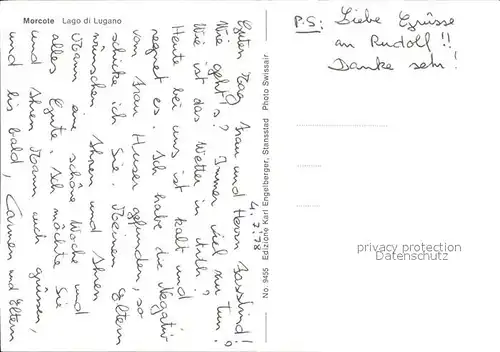 Morcote Lago di Lugano
No. 9455 Edizione Karl Engelberger, Stansstad Photo Swissair
7. 2. 78
Guten Tag Frau und Herrn
Wie geht's? Immer viel zu tun.
Wie ist das Wetter in
Heute bei uns ist kalt und
regnet es. Ich habe die Negativ
vom Frau Huser gefunden, so
schicke ich Sie. Meinen Eltern
wünschen Ihnen und Ihren
Mann eine schöne Woche und
alles Gute. Ich möchte Sie
und Ihren Mann auch grüssen,
und bis bald, Carmen und Eltern
P.S: Liebe Grüsse
an Rudolf!!
Danke sehr!
privacy protection
Datenschutz